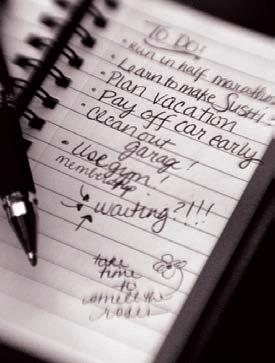 TO DO:
• Run in half marathon
• Learn to make Sushi -
• Plan vacation
• Pay off car early
• clean out
garage!
• Use gym!
membership
waiting?!!!
take
time
to
the
roses